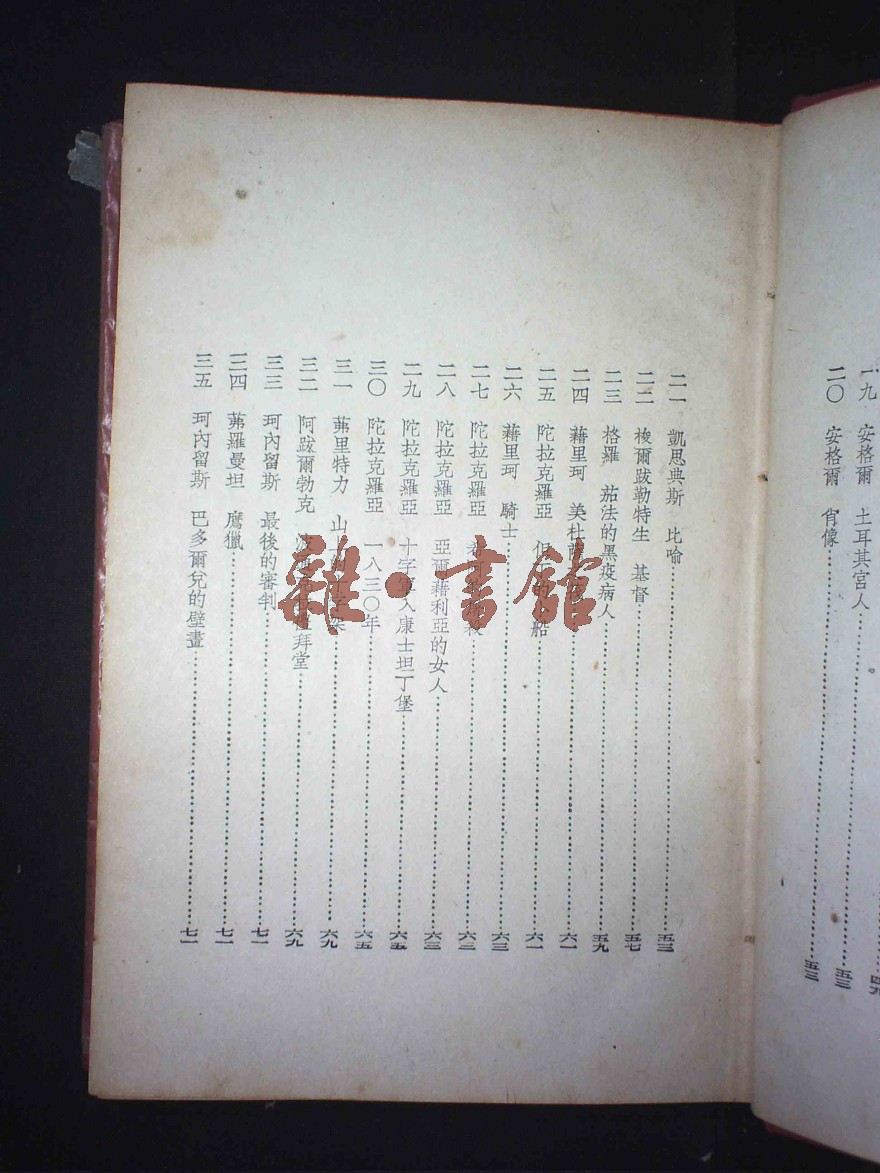 一九 安格爾 土耳其宮人
四九
二〇 安格爾 肖像……五三
五三
二一 凱思典斯 比喻……五三
二二 梭爾跋勒特生 基督……五七
二三 格羅 茄法的黑疫病人……五九
二四 藉里珂 美杜……六一
二五 陀拉克羅亞 但……船……六一
二六 藉里珂 騎士……六三
二七 陀拉克羅亞……六三
二八 陀拉克羅亞 亞爾藉利亞的女人……六三
二九 陀拉克羅亞 十字軍入康士坦丁堡……六五
三〇 陀拉克羅亞 一八三〇年……六五
三一 茀里特力 山上的十字架……六九
三二 阿跋爾勃克……拜堂……六九
三三 珂內留斯 最後的審判……七一
三四 茀羅曼坦 鷹獵……七一
三五 珂內留斯 巴多爾兌的壁畫……七一
雜·書館